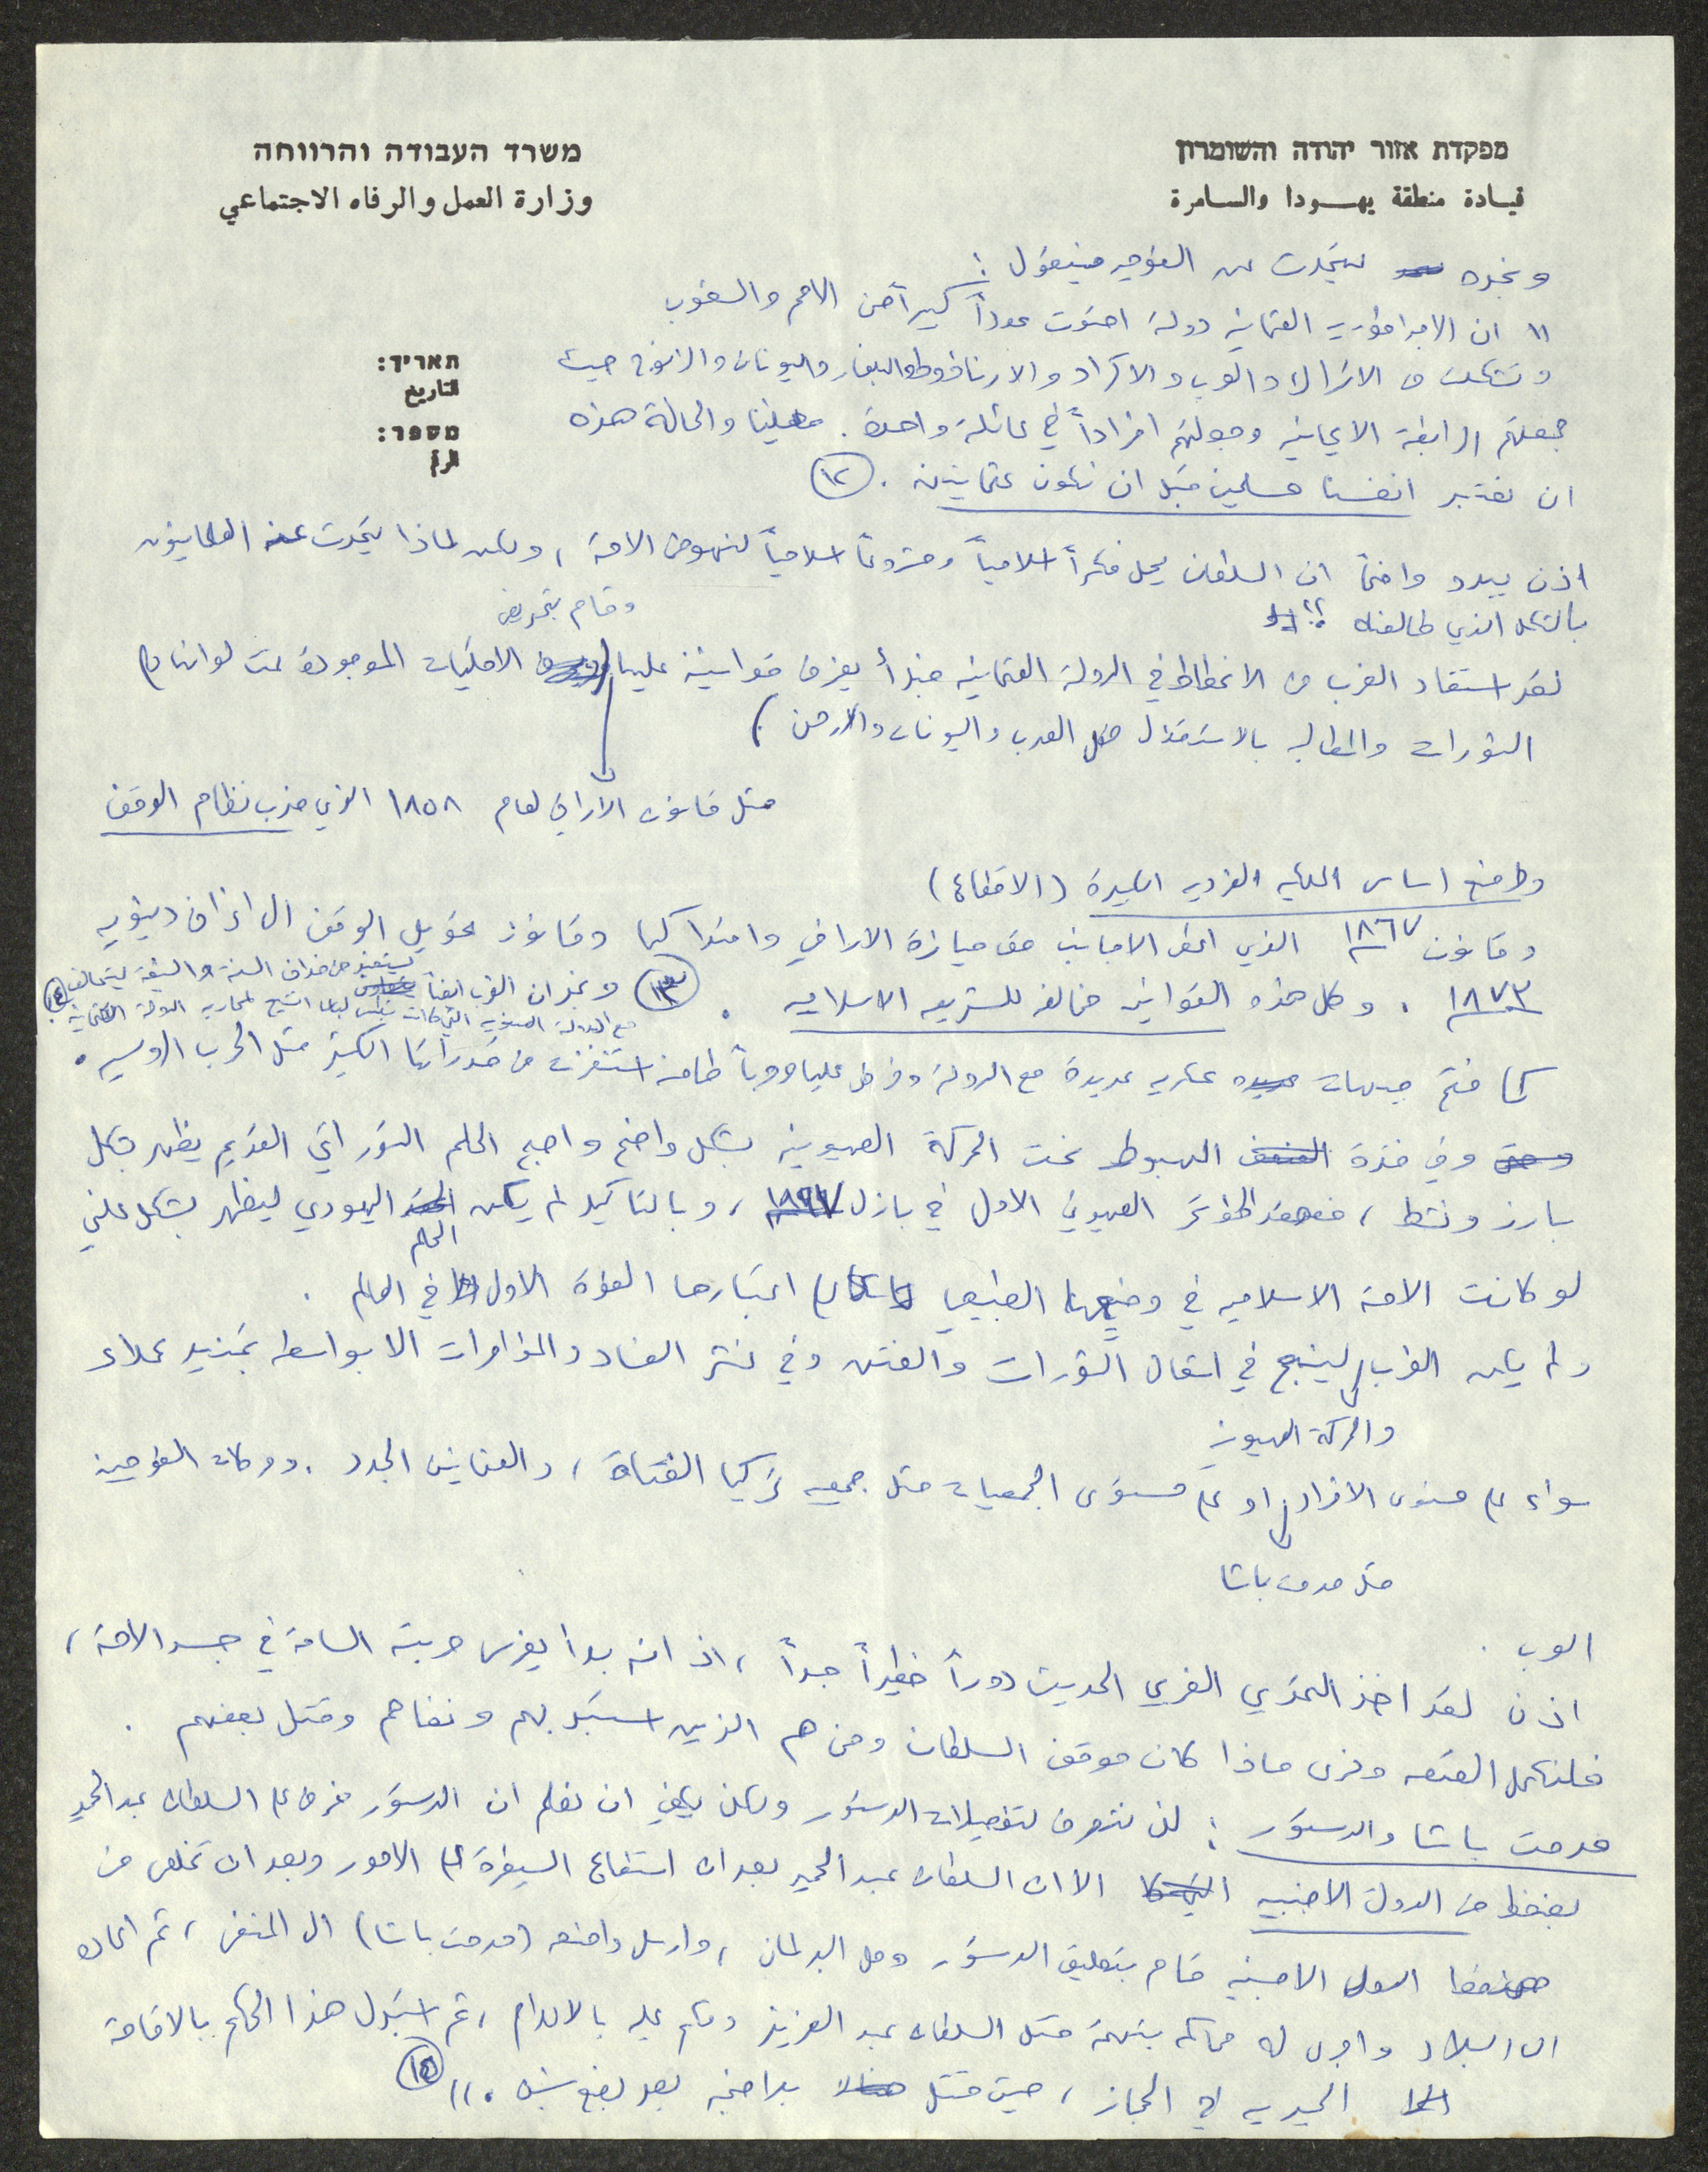 מפקדת אזור יהודה והשומרון
قيادة منطقة يهودا والسامرة
משרד העבודה והרווחה
وزارة العمل والرفاه الاجتماعي
תאריך:
التاريخ
מספר:
الرقم
ونجده يتحدث عن القومية فيقول:
" ان الامبراطورية العثمانية دولة احتوت عدداً كبيراً من الامم والشعوب
وتشكلت من الاتراك والعرب والاكراد والارناؤوط والبلغار واليونان والزنوج حيث
جمعتهم الرابطة الايمانية وجعلتهم افراداً في عائلة واحدة. فعلينا والحالة هذه
ان نعتبر انفسنا مسلمين قبل ان نكون عثمانيين. (١٢)
اذن يبدو واضحاً ان السلطان يحمل فكراً اسلامياً ومشروعاً اسلامياً لنهوض الامة، ولكن لماذا يتحدث عنه العلمانيون
بالشكل الذي طالعناه ؟!
وقام بتحريض
لقد استفاد الغرب من الانحطاط في الدولة العثمانية فبدأ يفرض قوانينه عليها ( الاقليات الموجودة تحت لوائها على
الثورات والمطالبة بالاستقلال مثل العرب واليونان والارمن)
مثل قانون الاراضي لعام ١٨٥٨ الذي ضرب نظام الوقف
ووضع اساس الملكية الفردية الكبيرة (الاقطاع)
وقانون ١٨٦٧ الذي اعطى الاجانب حق حيازة الاراضي وامتلاكها وقانون تحويل الوقف الى اغراض دنيوية
١٨٧٣. وكل هذه القوانين مخالفة للشريعة الاسلامية. (١٣) ونجد ان الغرب ايضاً يستفيد من خلاف السنة والشيعة ليتحالف
مع الدولة الصفوية التي كانت لباس التشيع لمحاربة الدولة العثمانية (١٤)
كما فتح جبهات عسكرية عديدة مع الدولة وفرض عليها حروباً طاحنة استنزفت من قدراتها الكثير مثل الحرب الروسية.
وفي فترة الهبوط نمت الحركة الصهيونية بشكل واضح واصبح الحلم التوراتي القديم يظهر بشكل
بارز ونشط، فعقد المؤتمر الصهيوني الاول في بازل ١٨٩٧، وبالتأكيد لم يكن الحلم اليهودي ليظهر بشكل علني
لو كانت الامة الاسلامية في وضعها الطبيعي على اعتبارها القوة الاولى في العالم.
ولم يكن الغرب والحركة الصهيونية لينجح في اشعال الثورات والفتن وفي نشر الفساد والمؤامرات الا بواسطة تجنيد عملاء
سواء على مستوى الافراد مثل مدحت باشا او على مستوى الجمعيات مثل جمعية تركيا الفتاة، والعثمانيين الجدد. ودعاة القومية
العرب.
اذن لقد اخذ التحدي الغربي الحديث دوراً خطيراً جداً، اذ انه بدأ يغرس حربته السامة في جسد الامة،
فلنكمل القصة ونرى ماذا كان موقف السلطان ومن هم الذين استبد بهم ونفاهم وقتل بعضهم.
مدحت باشا والدستور: لن نتعرض لتفصيلات الدستور ولكن يكفي ان نعلم ان الدستور فرض على السلطان عبد الحميد
بضغط من الدول الاجنبية الا ان السلطان عبد الحميد بعد ان استطاع السيطرة على الامور وبعد ان تخلص من
ضغط الدول الاجنبية قام بتعليق الدستور وحل البرلمان، وارسل واضعه (مدحت باشا) الى المنفى، ثم اعاده
الى البلاد واجرى له محاكمة بتهمة قتل السلطان عبد العزيز وحكم عليه بالاعدام، ثم استبدل هذا الحكم بالاقامة
الجبرية في الحجاز، حيث قتل بعد بضع سنين." (١٥)